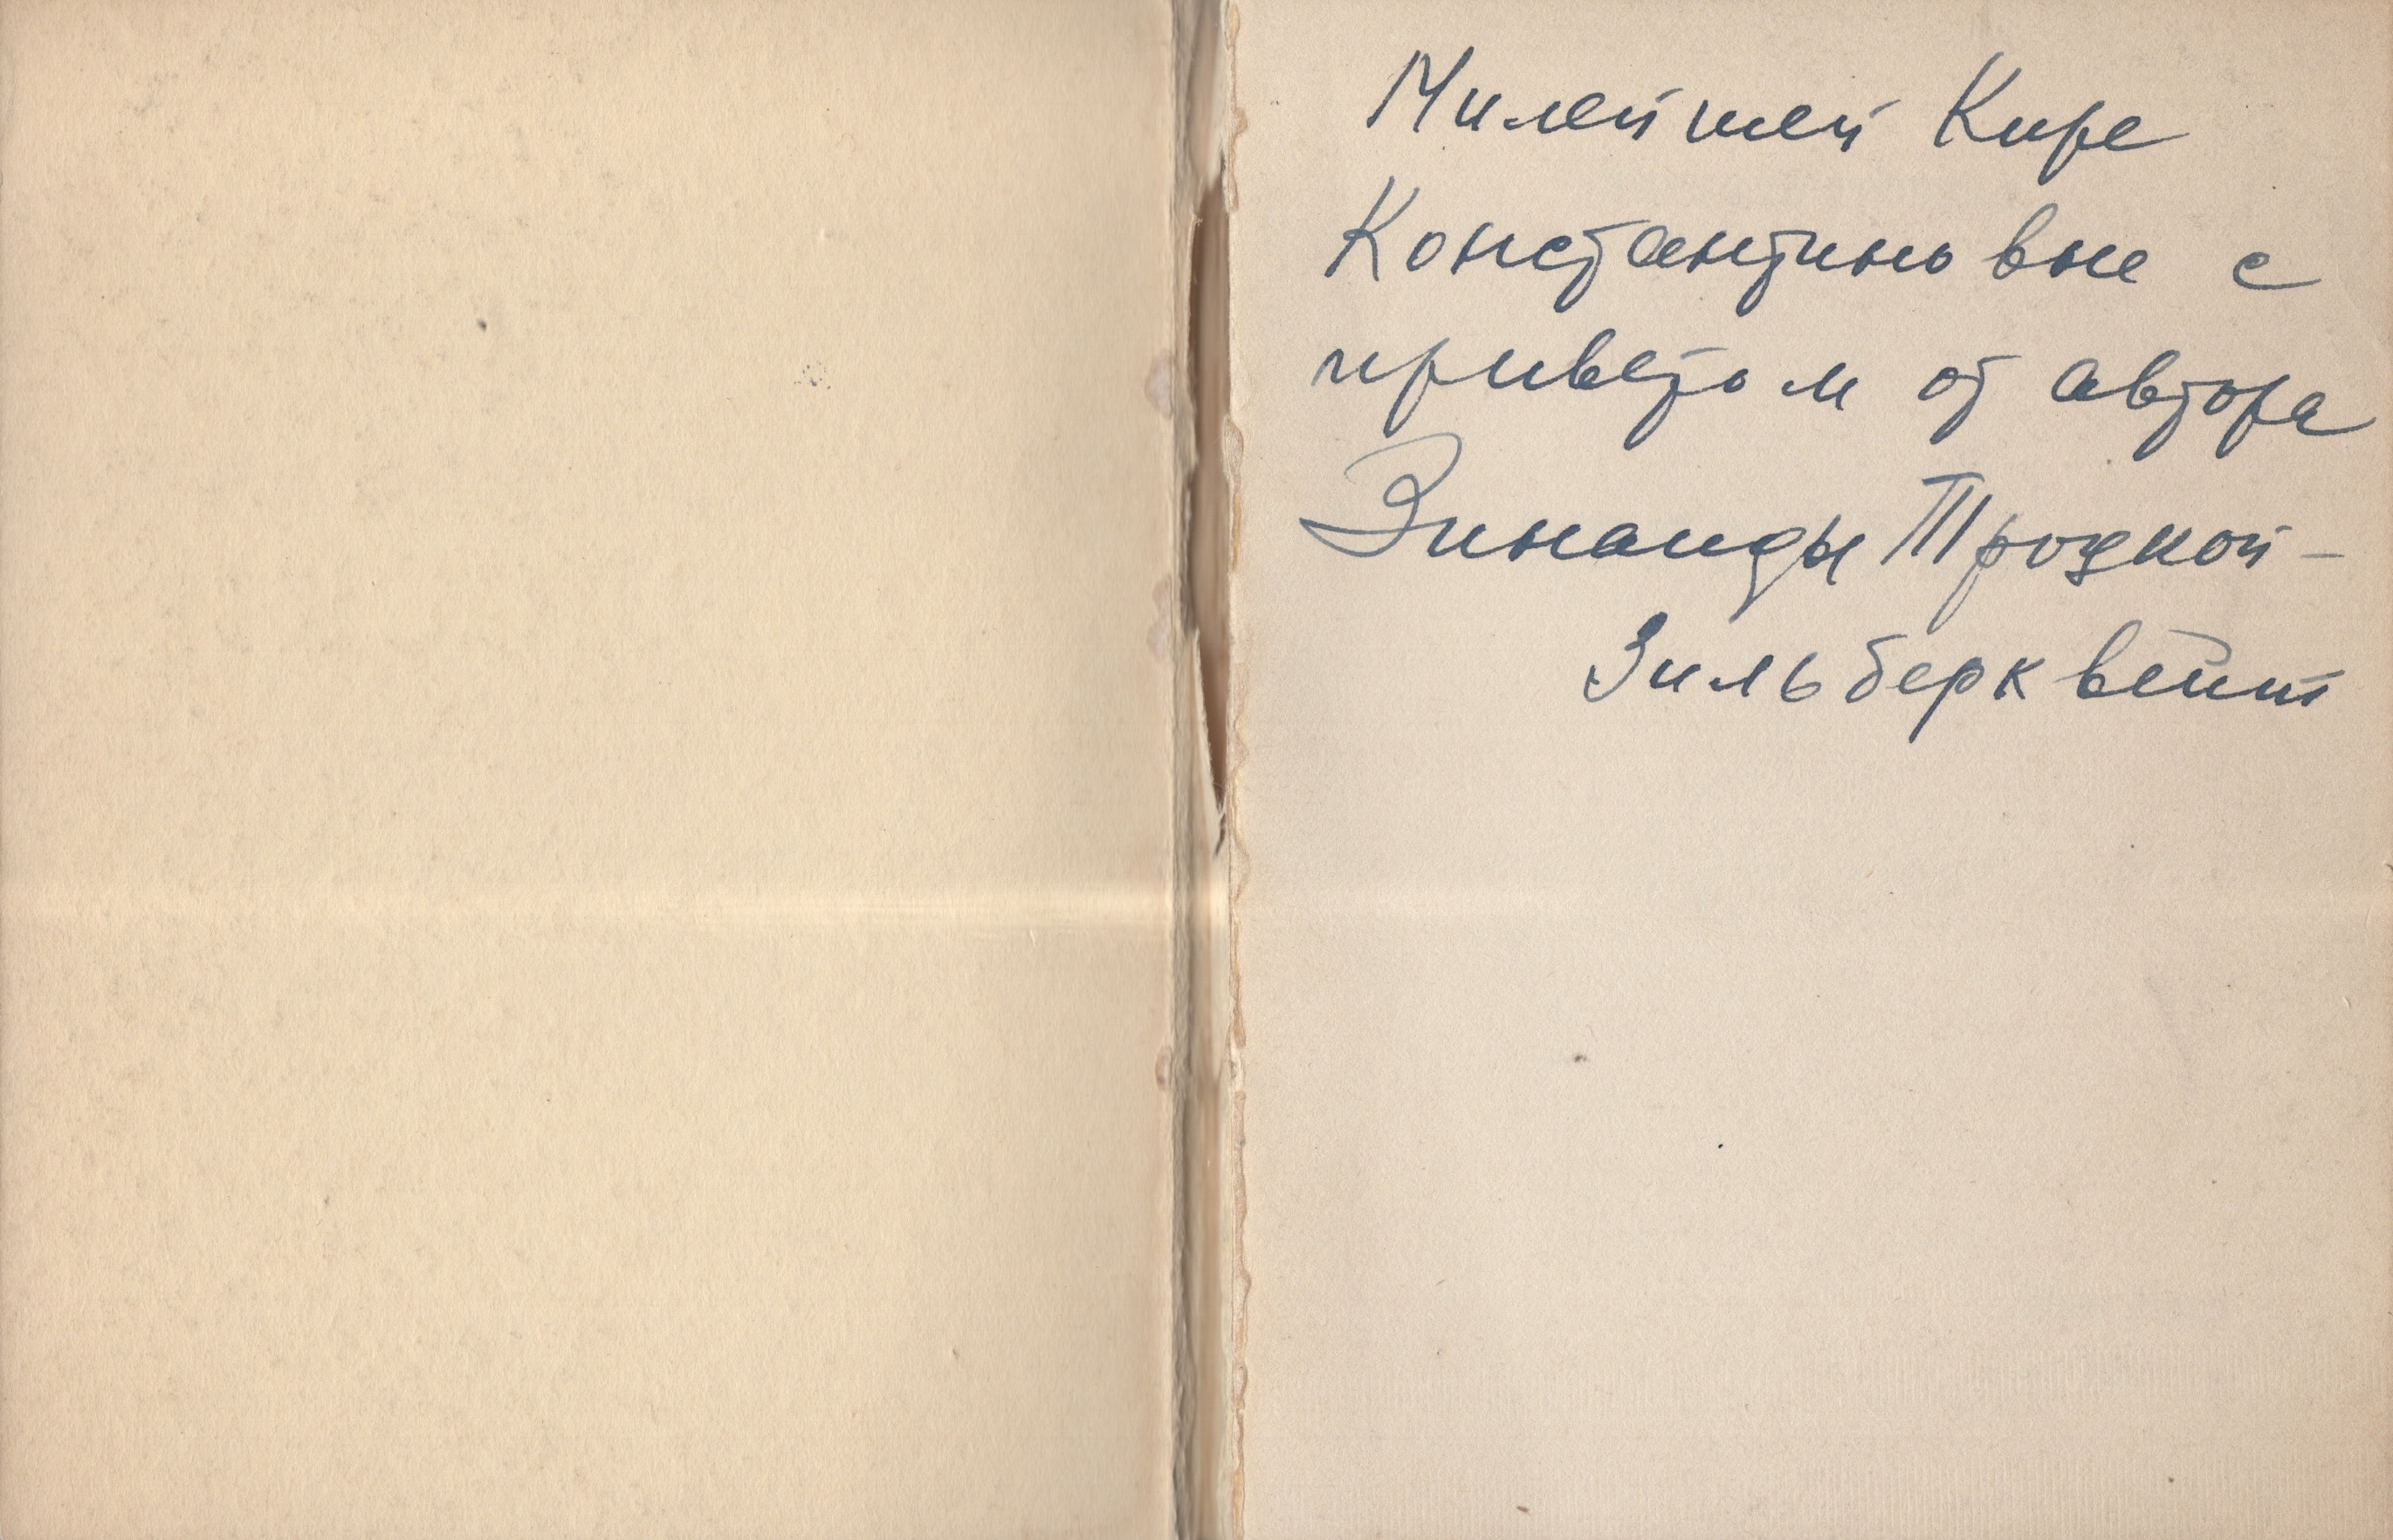 Милейшей Кире
Константиновне с
приветом от автора
Зинаиды Троцкой-
Зильберквейт